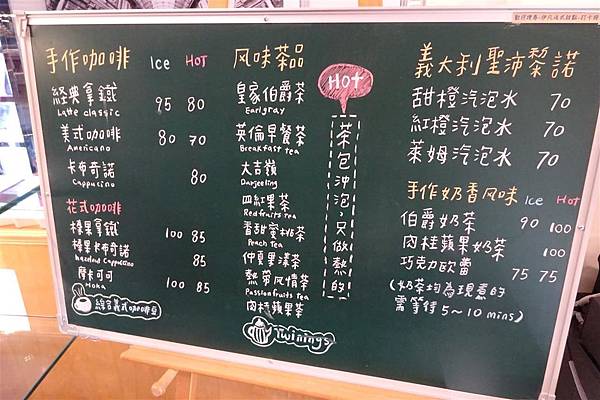 歡迎禮喬-伊凡法式甜點-打卡爾
手作咖啡 Ice HOT
經典拿鐵 95 80
Latte classic
美式咖啡 80 70
Americano
卡布奇諾 80
Cappucino
花式咖啡
榛果拿鐵 100 85
榛果卡布奇諾 85
Hazelnut Cappuccino
摩卡可可 100 85
Moka
綜合義式咖啡豆
风味茶品
皇家伯爵茶
Earlgray
英倫早餐茶
Breakfast tea
大吉嶺
Darjeeling
四紅果茶
Red fruits Tea
香甜蜜桃茶
Peach Tea
仲夏果漾茶
熱帶风情茶
Passionfruits Tea
肉桂蘋果茶
Twinings
HOT
茶包沖泡,只做熱的
義大利聖沛黎諾
甜橙汽泡水 70
紅橙汽泡水 70
萊姆汽泡水 70
手作奶香风味 Ice Hot
伯爵奶茶 90 100
肉桂蘋果奶茶 100
巧克力欧蕾 75 75
(奶茶均為現煮的
需等待5~10 mins)